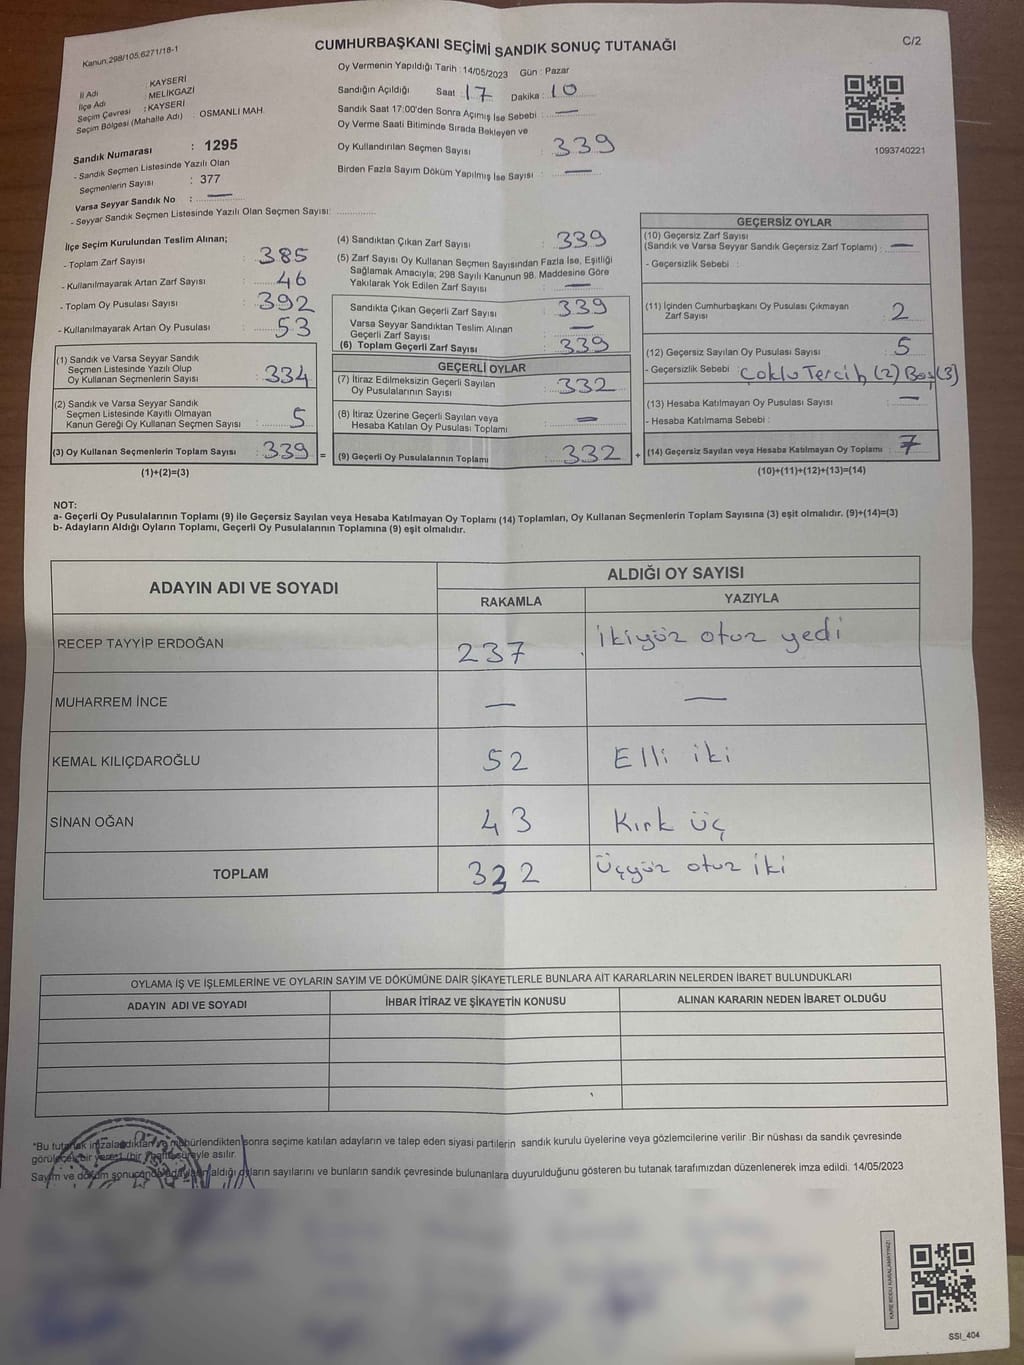 Kanun.298/105,6271/18-1
CUMHURBAŞKANI SEÇİMİ SANDIK SONUÇ TUTANAĞI
C/2
İl Adı : KAYSERİ
İlçe Adı : MELİKGAZİ
Seçim Çevresi : KAYSERİ
Seçim Bölgesi (Mahalle Adı) : OSMANLI MAH.
Sandık Numarası : 1295
- Sandık Seçmen Listesinde Yazılı Olan
Seçmenlerin Sayısı : 377
Varsa Seyyar Sandık No : —
- Seyyar Sandık Seçmen Listesinde Yazılı Olan Seçmen Sayısı: ..............
Oy Vermenin Yapıldığı Tarih : 14/05/2023 Gün : Pazar
Sandığın Açıldığı Saat : 17 Dakika : 10
Sandık Saat 17:00'den Sonra Açımış İse Sebebi : —
Oy Verme Saati Bitiminde Sırada Bekleyen ve
Oy Kullandırılan Seçmen Sayısı : 339
Birden Fazla Sayım Döküm Yapılmış İse Sayısı : —
1093740221
İlçe Seçim Kurulundan Teslim Alınan;
- Toplam Zarf Sayısı : 385
- Kullanılmayarak Artan Zarf Sayısı : 46
- Toplam Oy Pusulası Sayısı : 392
- Kullanılmayarak Artan Oy Pusulası : 53
(1) Sandık ve Varsa Seyyar Sandık
Seçmen Listesinde Yazılı Olup
Oy Kullanan Seçmenlerin Sayısı : 334
(2) Sandık ve Varsa Seyyar Sandık
Seçmen Listesinde Kayıtlı Olmayan
Kanun Gereği Oy Kullanan Seçmen Sayısı : 5
(3) Oy Kullanan Seçmenlerin Toplam Sayısı : 339 =
(1)+(2)=(3)
(4) Sandıktan Çıkan Zarf Sayısı : 339
(5) Zarf Sayısı Oy Kullanan Seçmen Sayısından Fazla İse, Eşitliği
Sağlamak Amacıyla; 298 Sayılı Kanunun 98. Maddesine Göre
Yakılarak Yok Edilen Zarf Sayısı : —
Sandıkta Çıkan Geçerli Zarf Sayısı : 339
Varsa Seyyar Sandıktan Teslim Alınan
Geçerli Zarf Sayısı : —
(6) Toplam Geçerli Zarf Sayısı : 339
GEÇERLİ OYLAR
(7) İtiraz Edilmeksizin Geçerli Sayılan
Oy Pusulalarının Sayısı : 332
(8) İtiraz Üzerine Geçerli Sayılan veya
Hesaba Katılan Oy Pusulası Toplamı : —
(9) Geçerli Oy Pusulalarının Toplamı : 332 +
GEÇERSİZ OYLAR
(10) Geçersiz Zarf Sayısı
(Sandık ve Varsa Seyyar Sandık Geçersiz Zarf Toplamı) : —
- Geçersizlik Sebebi :
(11) İçinden Cumhurbaşkanı Oy Pusulası Çıkmayan
Zarf Sayısı : 2
(12) Geçersiz Sayılan Oy Pusulası Sayısı : 5
- Geçersizlik Sebebi : Çoklu Tercih (2) Boş (3)
(13) Hesaba Katılmayan Oy Pusulası Sayısı : —
- Hesaba Katılmama Sebebi :
(14) Geçersiz Sayılan veya Hesaba Katılmayan Oy Toplamı : 7
(10)+(11)+(12)+(13)=(14)
NOT:
a- Geçerli Oy Pusulalarının Toplamı (9) ile Geçersiz Sayılan veya Hesaba Katılmayan Oy Toplamı (14) Toplamları, Oy Kullanan Seçmenlerin Toplam Sayısına (3) eşit olmalıdır. (9)+(14)=(3)
b- Adayların Aldığı Oyların Toplamı, Geçerli Oy Pusulalarının Toplamına (9) eşit olmalıdır.
ADAYIN ADI VE SOYADI
ALDIĞI OY SAYISI
RAKAMLA YAZIYLA
RECEP TAYYİP ERDOĞAN 237 İkiyüz otuz yedi
MUHARREM İNCE — —
KEMAL KILIÇDAROĞLU 52 Elli iki
SİNAN OĞAN 43 Kırk üç
TOPLAM 332 Üçyüz otuz iki
OYLAMA İŞ VE İŞLEMLERİNE VE OYLARIN SAYIM VE DÖKÜMÜNE DAİR ŞİKAYETLERLE BUNLARA AİT KARARLARIN NELERDEN İBARET BULUNDUKLARI
ADAYIN ADI VE SOYADI İHBAR İTİRAZ VE ŞİKAYETİN KONUSU ALINAN KARARIN NEDEN İBARET OLDUĞU
*Bu tutanak imzalandıktan ve mühürlendikten sonra seçime katılan adayların ve talep eden siyasi partilerin sandık kurulu üyelerine veya gözlemcilerine verilir .Bir nüshası da sandık çevresinde
görülecek bir yere 1 (bir) hafta süreyle asılır.
Sayım ve döküm sonucunda adayların aldığı oyların sayılarını ve bunların sandık çevresinde bulunanlara duyurulduğunu gösteren bu tutanak tarafımızdan düzenlenerek imza edildi. 14/05/2023
KARE KODU KARALAMAYINIZ!
SSI_404